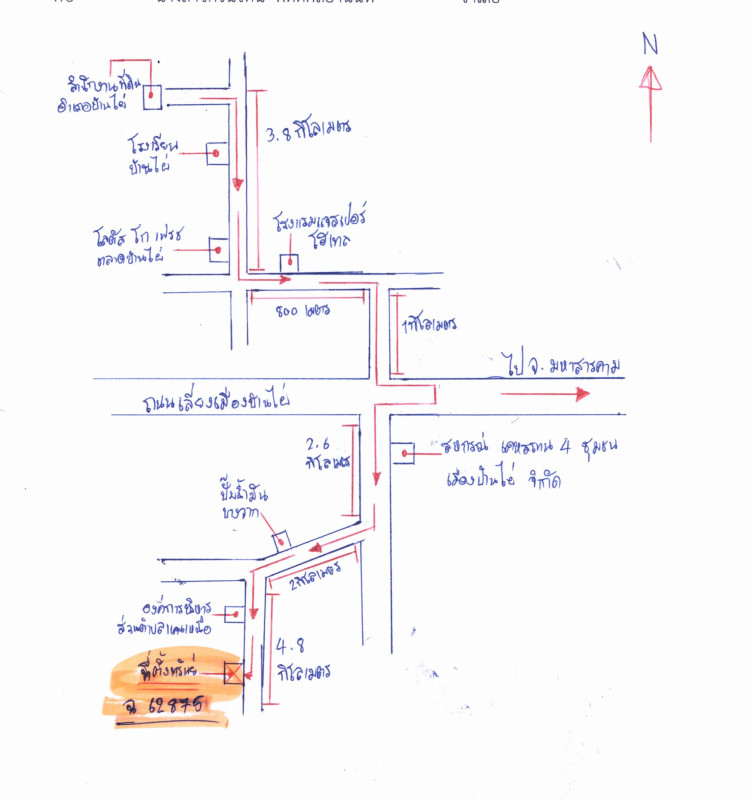 N
สำนักงานที่ดิน
อำเภอบ้านไผ่
3.8 กิโลเมตร
โรงเรียน
บ้านไผ่
โรงแรมเจสเปอร์
โฮเทล
โลตัส โก เฟรช
ตลาดบ้านไผ่
800 เมตร
1 กิโลเมตร
ไป จ. มหาสารคาม
ถนนเลี่ยงเมืองบ้านไผ่
2.6
กิโลเมตร
สหกรณ์ เคหสถาน 4 ชุมชน
เมืองบ้านไผ่ จำกัด
ปั๊มน้ำมัน
บางจาก
2 กิโลเมตร
องค์การบริหาร
ส่วนตำบลแคนเหนือ
4.8
กิโลเมตร
ที่ตั้งทรัพย์
ฉ 62875